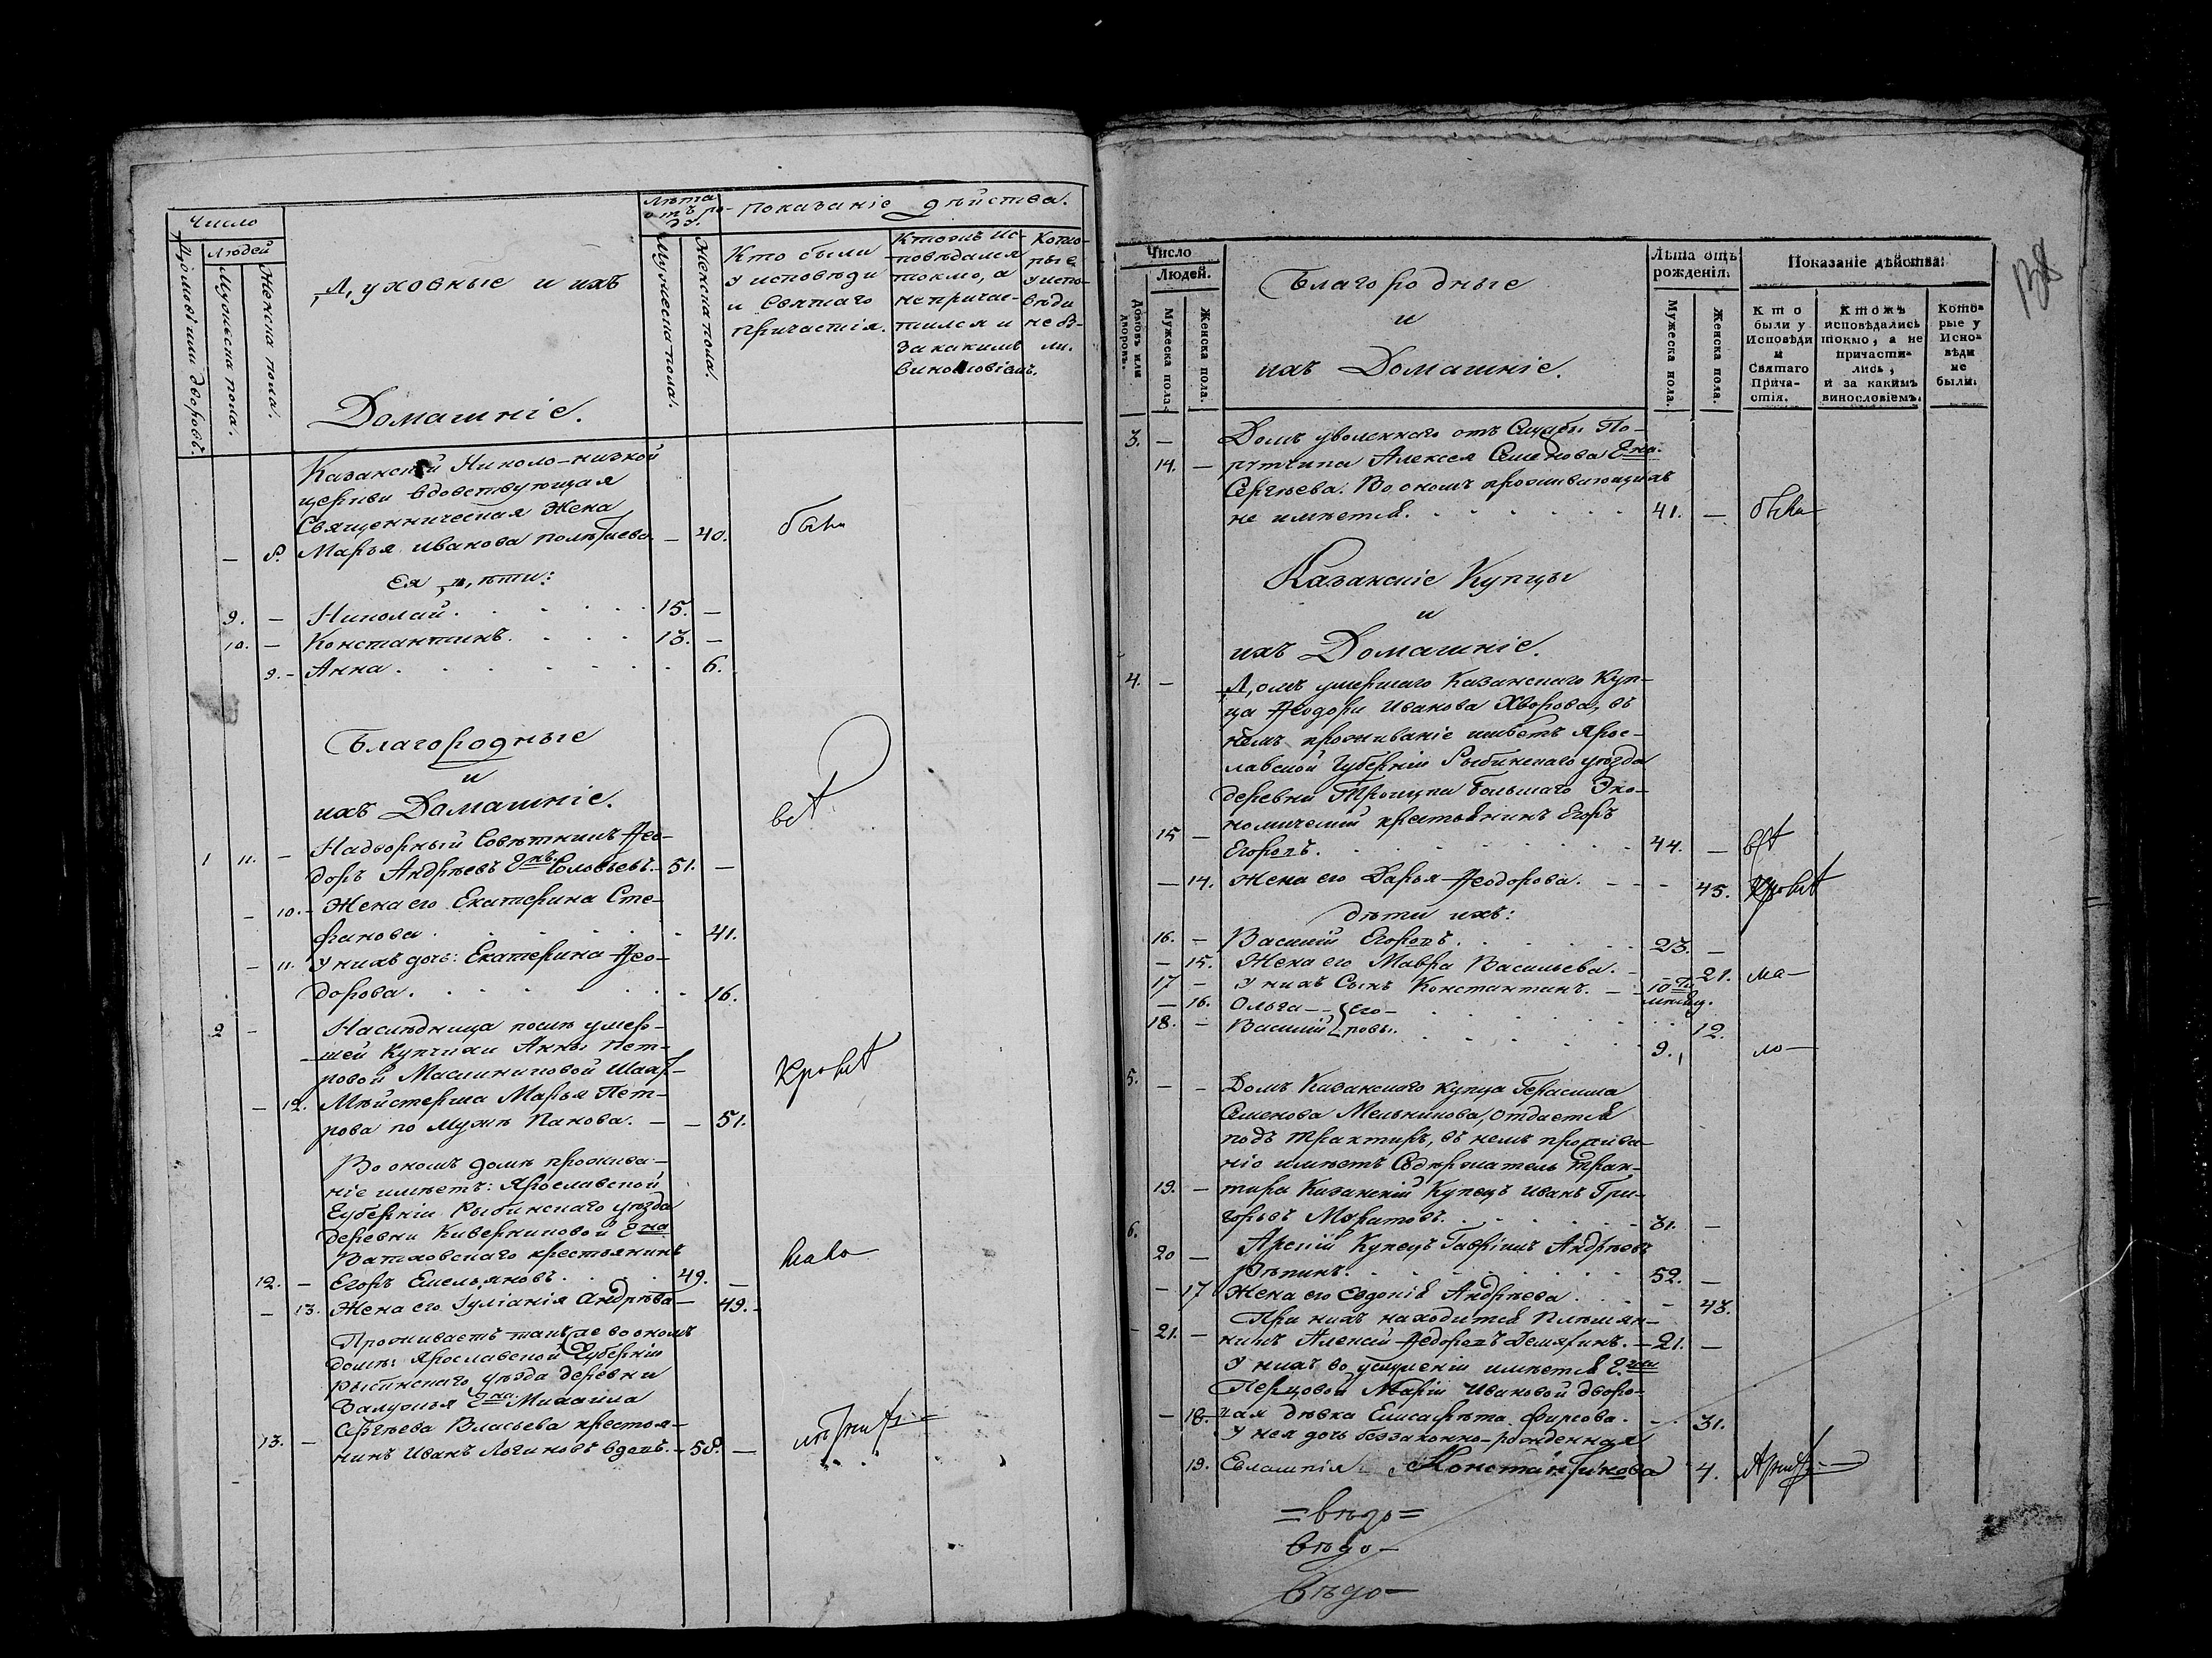 Число
Людей
Домовъ или дворовъ.
Мужеска пола.
Женска пола.
Духовные и ихъ
Домашніе.
Лѣта
отъ ро-
Мужеска пола.
Женска пола.
Показаніе дѣйства.
Кто были
у исповѣди
и Святаго
причастія.
Ктожъ ис-
повѣдался
токмо, а
не причас-
тился и
за какимъ
винословіемъ.
Кото-
рые
у испо-
вѣди
не бы-
ли.
Казанской Николо-низкой
церкви вдовствующая
Священническая Жена
— 8. Марья Иванова — 40.
Ея дѣти:
9. — Николай. 15. —
10. — Константинъ. 13. —
9. — Анна. 6.
Благородные
и
ихъ Домашніе.
1 11. — Надворный Совѣтникъ Ѳео-
доръ Андрѣевъ Г.нъ Соловьевъ. 51. —
— 10. — Жена его Екатерина Сте-
фанова. 41.
— 11. У нихъ дочь: Екатерина Ѳео-
дорова. 16.
2 — Наслѣдница послѣ умер-
шей Купчихи Анны Пет-
ровой Масленниковой Штап-
— 12. Мѣйстерша Марья Пет-
рова по мужѣ Панова. — — 51.
Во ономъ домѣ прожива-
ніе имѣетъ: Ярославской
Губерніи Рыбинскаго уѣзда
деревни Киверниковой Г.на
Ватковскаго крестьянинъ
12. — Егоръ Емельяновъ. 49. —
— 13. Жена его Іуліанія Андрѣева — 49. —
Проживаетъ также во ономъ
домѣ: Ярославской Губерніи
Рыбинскаго уѣзда деревни
Залужья Г.на Михаила
Сергѣева Власьева крестья-
13. — нинъ Иванъ Логиновъ вдовъ. — 58. —
Число
Людей.
Домовъ или дворовъ.
Мужеска пола.
Женска пола.
Благородные
и
ихъ Домашніе.
Лѣта отъ
рожденія.
Мужеска пола.
Женска пола.
Показаніе дѣйства:
Кто
были у
Исповѣди
и
Святаго
Прича-
стія.
Ктожъ
исповѣдались
токмо, а не
причасти-
лись,
и за какимъ
винословіемъ.
Кото-
рые у
Испо-
вѣди
не
были.
138
3. — Домъ уволеннаго отъ Службы По-
14. — рутчика Алексея Семенова Г.на
Сергѣева. Во ономъ проживающихъ
не имѣется. 41. —
Казанскіе Купцы
и
ихъ Домашніе.
4. — Домъ умершаго Казанскаго Куп-
ца Ѳеодора Иванова Хворова, въ
немъ проживаніе имѣетъ Ярос-
лавской Губерніи Рыбинскаго уѣзда
деревни Троицка Большаго Эко-
номическій крестьянинъ Егоръ
15 — Егоровъ. 44. —
— 14. Жена его Дарья Ѳеодорова. 45.
дѣти ихъ:
16. — Василій Егоровъ. 23. —
— 15. Жена его Мавра Васильева. — 21.
17 — У нихъ Сынъ Константинъ. — 10ти мѣсяц.
— 16. Ольга — Его- 12.
18. — Василій ровы. 9.
5. — — Домъ Казанскаго купца Герасима
Семенова Мельникова, отдается
подъ трактиръ, въ немъ прожива-
ніе имѣетъ Содержатель трак-
19. — тира Казанскій Купецъ Иванъ Гри-
горьевъ Муратовъ. 31. —
6. Арскій Купецъ Гавріилъ Андрѣевъ
20 — Рѣпинъ. 52. —
— 17 Жена его Евдокія Андрѣева. — 43.
При нихъ находится Племян-
21. — никъ Алексѣй Ѳедоровъ — 21. —
У нихъ во услуженіи имѣется Г.жи
Перцовой Маріи Ивановой дворо-
— 18. вая дѣвка Елисавѣта Фирсова. — 31.
У нея дочь беззаконно-рожденная
19. Евлампія Константинова 4.
= вѣдо =
вѣдо —
вѣдо —